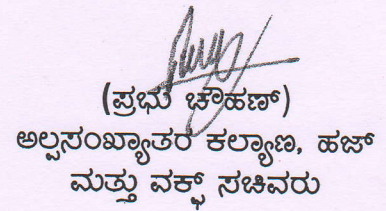 (ಪ್ರಭು ಚೌಹಣ್)
ಅಲ್ಪಸಂಖ್ಯಾತರ ಕಲ್ಯಾಣ, ಹಜ್
ಮತ್ತು ವಕ್ಫ್ ಸಚಿವರು